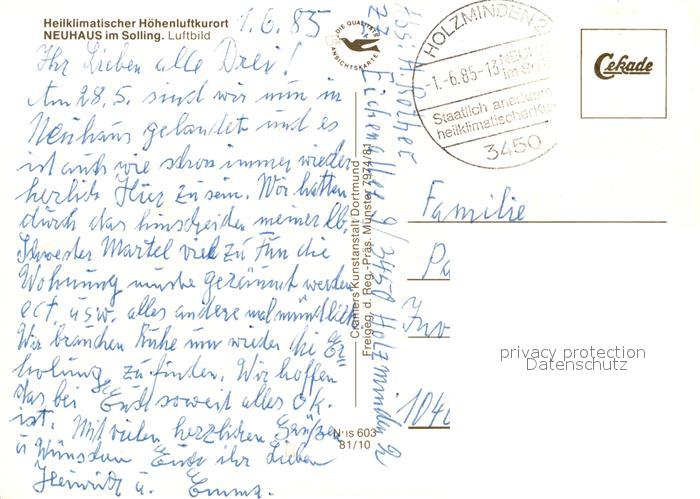 Heilklimatischer Höhenluftkurort
NEUHAUS im Solling. Luftbild
1.6.85
Ihr Lieben alle Drei!
Am 28.5. sind wir nun in
Neuhaus gelandet und es
ist auch wie schon immer wieder
herrlich Hier zu sein. Wir hatten
durch das hinscheiden meiner lb.
Schwester Martel viel zu Tun die
Wohnung musste geräumt werden
ect. usw. alles andere mal mündlich.
Wir brauchen Ruhe um wieder die Er-
holung zu finden. Wir hoffen
das bei Euch soweit alles ok.
ist. Mit vielen herzlichen Grüßen
u Wünschen Euch ihr Lieben
Heinrich u. Emma.
DIE QUALITÄTS
ANSICHTSKARTE
Abs. H.
Z.Z. Eichenallee 9/3450 Holzminden 2
Cramers Kunstanstalt Dortmund
Freigeg. d. Reg.-Präs. Münster 7974/81
N is 603
81/10
HOLZMINDEN 2
-1.-6.85-13
NEUH
im S
Staatlich anerkan
heilklimatischer Ku
3450
Cekade
Familie
Pa
104
privacy protection
Datenschutz